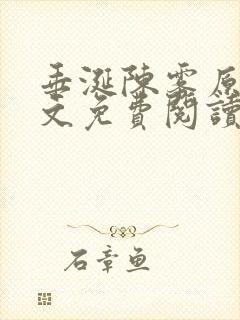 垂涎陳雾原
文免費閱讀
石章鱼